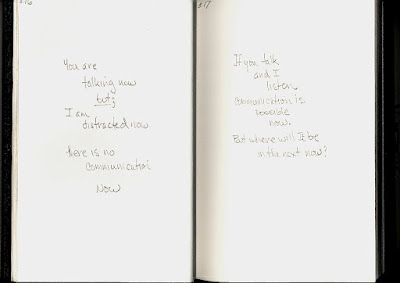 You are
talking now
but;
I am
distracted now
there is no
communication
Now
317
If you talk
and I
listen
communication is
possible
now.
But where will It be
in the next now?